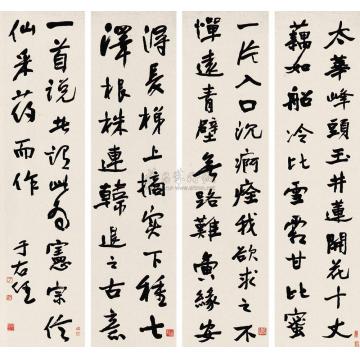 太華峰頭玉井蓮開花十丈
藕如船冷比雪霜甘比蜜
一片入口沉痾痊我欲求之不
憚遠青壁無路難夤緣安
得長梯上摘實下種七
澤根株連韓退之古意
一首說此為憲宗
仙采药而作
于右任